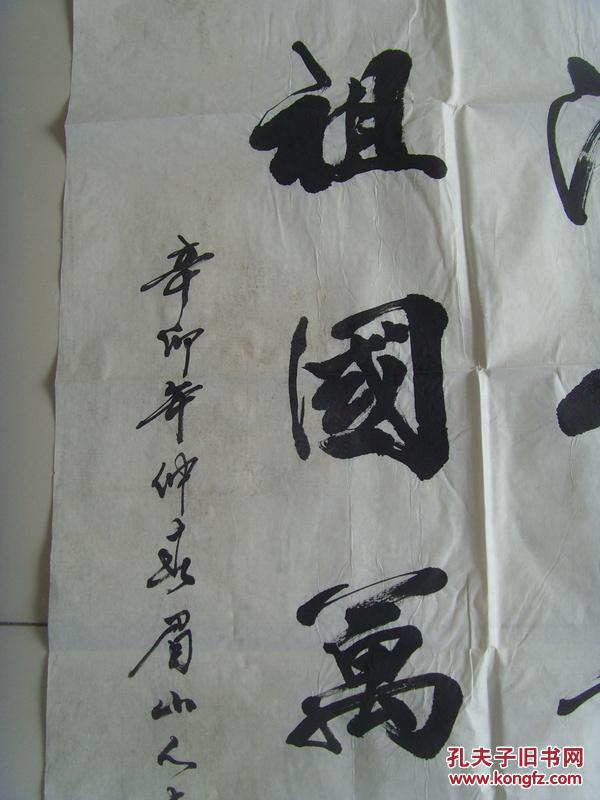 祖國萬
辛卯年仲春眉山人
孔夫子旧书网
www.kongfz.com